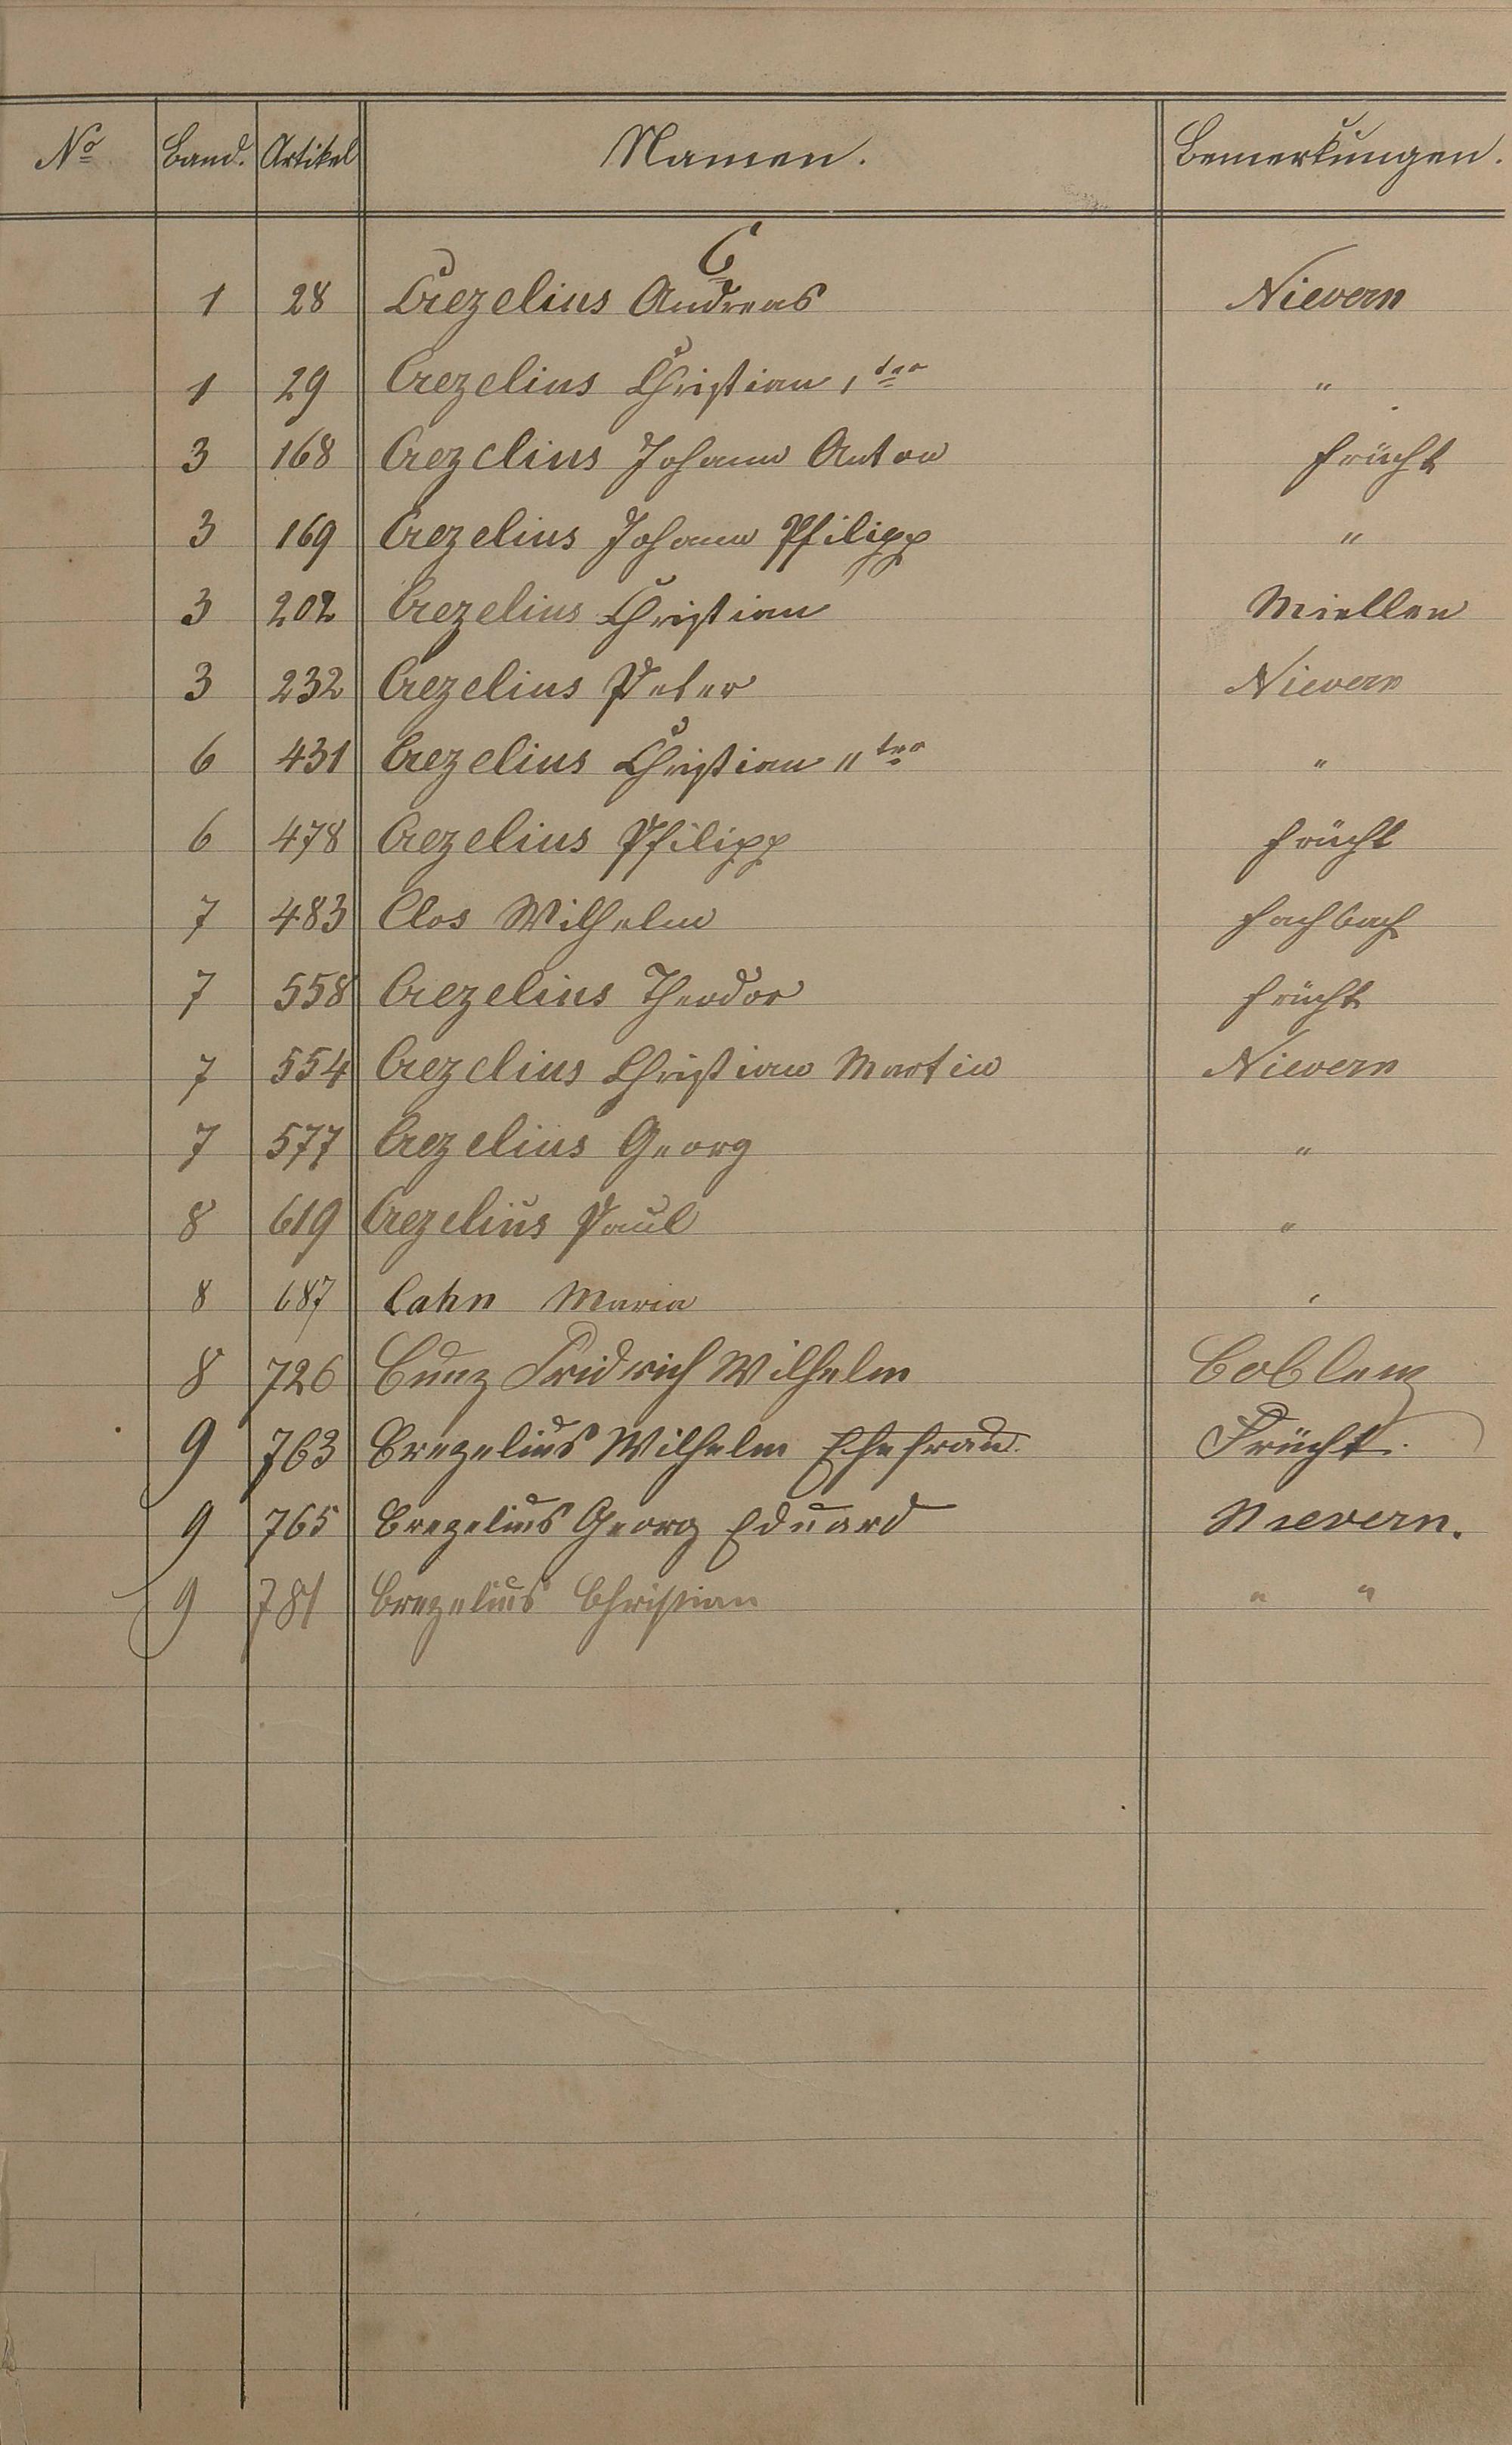 No Band. Artikel Namen. Bemerkungen.
C
1 28 Crezelius Andreas Nievern
1 29 Crezelius Christian 1ter "
3 168 Crezelius Johann Anton Frücht
3 169 Crezelius Johann Philipp "
3 202 Crezelius Christian Miellen
3 232 Crezelius Peter Nievern
6 431 Crezelius Christian 11ter "
6 478 Crezelius Philipp Frücht
7 483 Clos Wilhelm Fachbach
7 558 Crezelius Theodor Frücht
7 554 Crezelius Christian Martin Nievern
7 577 Crezelius Georg "
8 619 Crezelius Paul "
8 687 Cahn Maria "
8 726 Cunz Fridrich Wilhelm Coblenz
9 763 Crezelius Wilhelm Ehefrau. Frücht.
9 765 Crezelius Georg Eduard Nievern.
9 781 Crezelius Christian " "